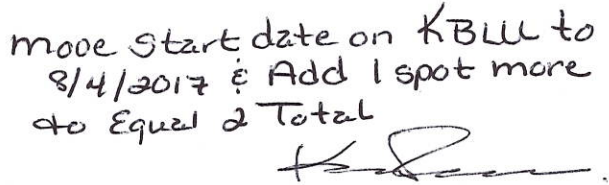 move start date on KBLU to
8/4/2017 & Add 1 spot more
to Equal 2 Total